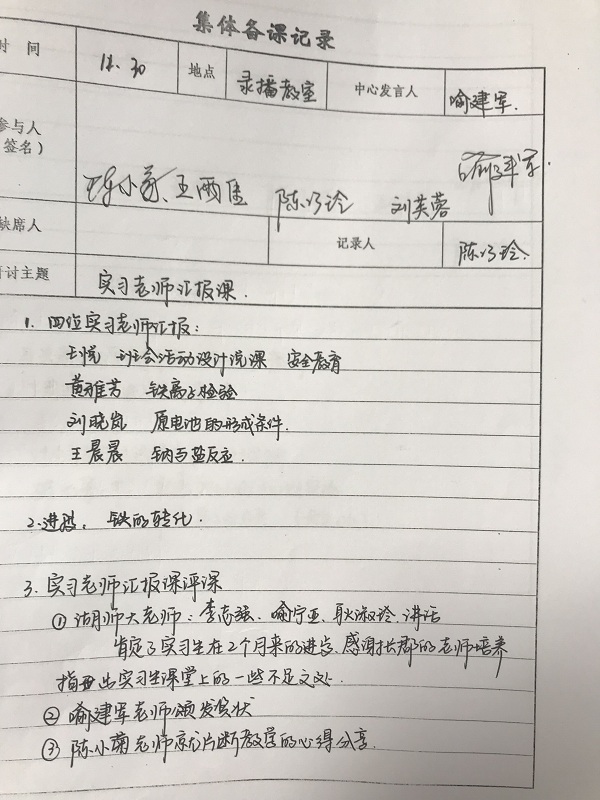 集体备课记录
时 间 11.30 地点 录播教室 中心发言人 喻建军.
参与人
签名） 王雨佳 陈巧玲 刘芙蓉 喻建军.
缺席人 记录人 陈巧玲.
研讨主题 实习老师汇报课.
1. 四位实习老师汇报:
王悦 班会活动设计说课 安全教育
黄雅芳 铁离子检验
刘晓岚 原电池的形成条件.
王晨晨 钠与盐反应.
2. 进禄. 铁的转化.
3. 实习老师汇报课评课
① 湖师大老师: 李志强. 喻宁亚. 耿淑玲. 讲话
肯定了实习生在2个月来的进步、感谢长郡的老师培养
指出实习生课堂上的一些不足之处.
② 喻建军老师颁发贺状
③ 陈小菊老师京片断教学的心得分享.